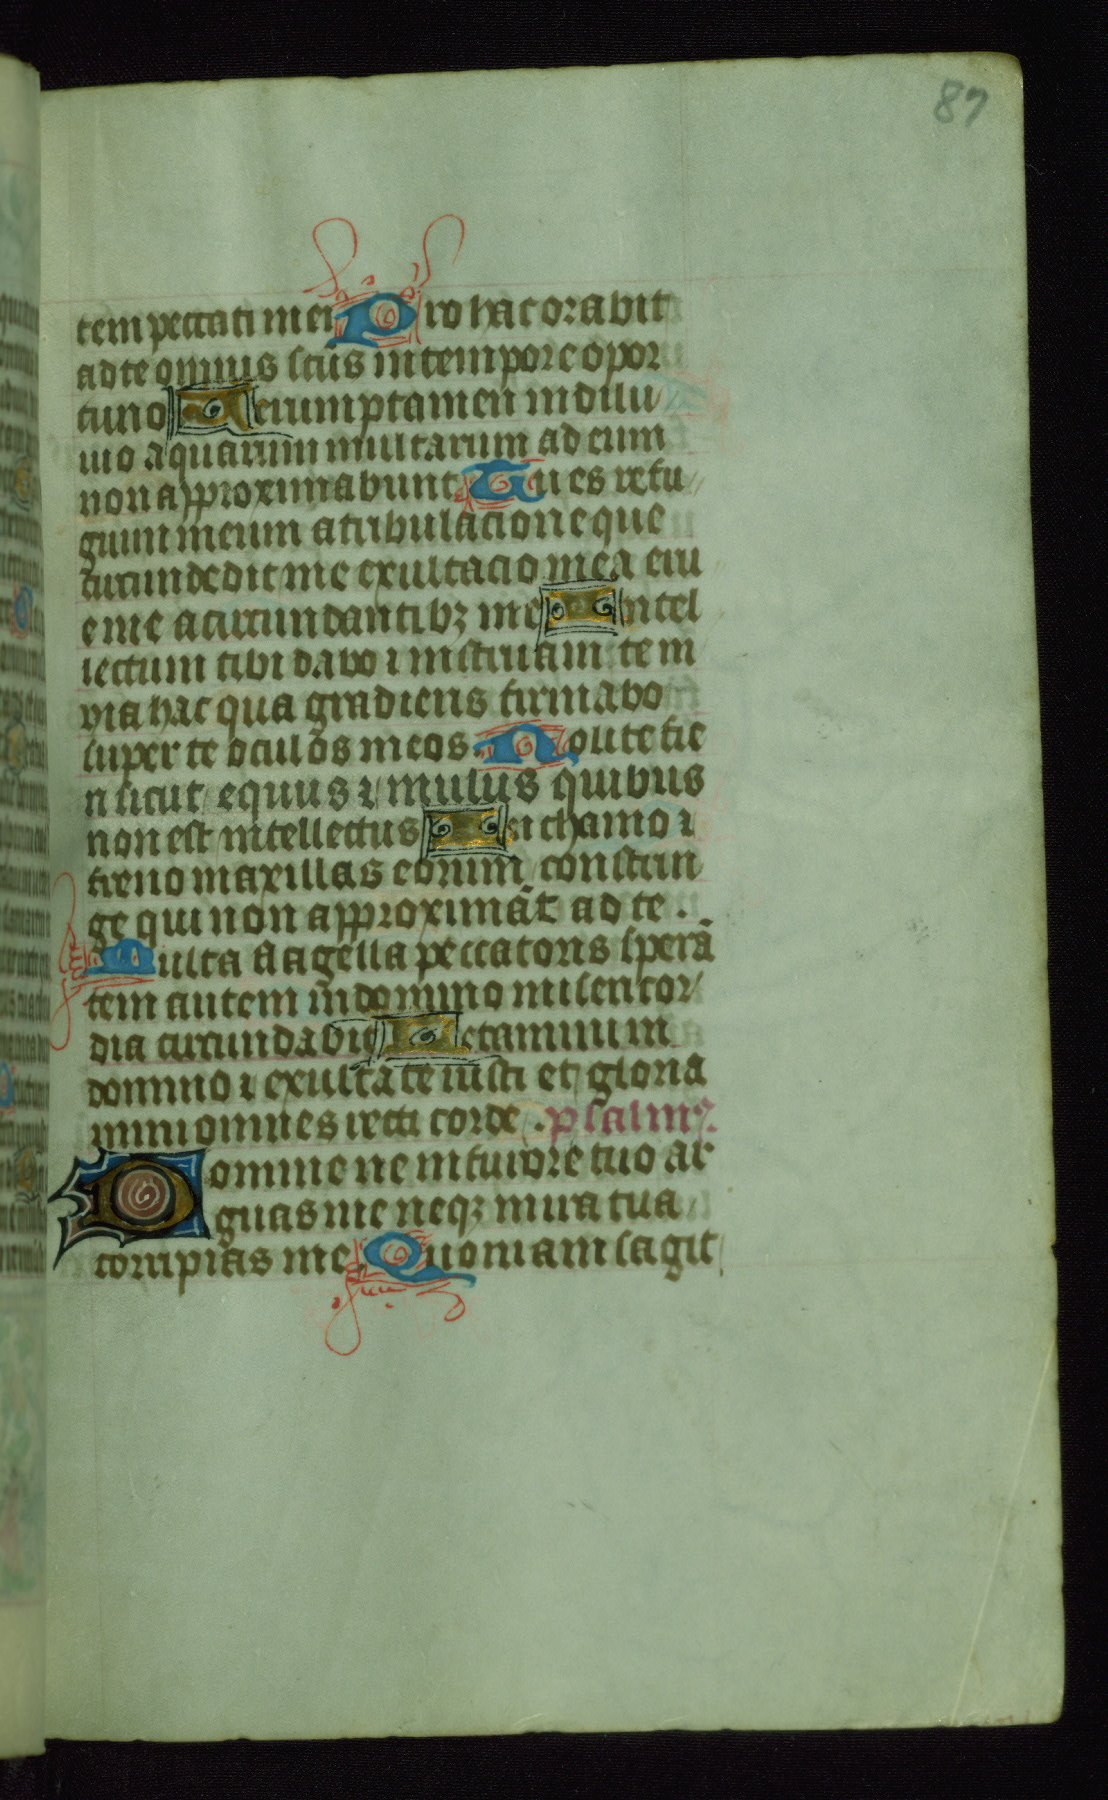 87
tem peccati mei Pro hac orabit
ad te omnis sc̄us in tempore opor
tuno Uerumptamen in dilu
uio aquarum multarum ad eum
non approximabunt Tu es refu
gium meum a tribulacione que
circundedit me exultacio mea eru
e me a circundantibꝫ me Intel
lectum tibi dabo ⁊ instruam te in
via hac qua gradieris firmabo
super te oculos meos. Nolite fie
ri sicut equus ⁊ mulus quibus
non est intellectus In chamo ⁊
freno maxillas eorum constrin
ge qui non approximāt ad te.
Multa flagella peccatoris sperā
tem autem in domino misericor
dia circundabit Letamini in
domino ⁊ exultate iusti et gloria
mini omnes recti corde . psalmꝰ.
Domine ne in furore tuo ar
guas me neqꝫ in ira tua
corripias me. Quoniam sagit